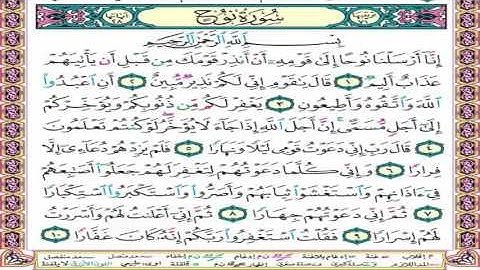 سُورَةُ نُوحٍ
بِسْمِ اللَّهِ الرَّحْمَٰنِ الرَّحِيمِ
إِنَّا أَرْسَلْنَا نُوحًا إِلَىٰ قَوْمِهِ أَنْ أَنذِرْ قَوْمَكَ مِن قَبْلِ أَن يَأْتِيَهُمْ
عَذَابٌ أَلِيمٌ ١ قَالَ يَاقَوْمِ إِنِّي لَكُمْ نَذِيرٌ مُّبِينٌ ٢ أَنِ اعْبُدُوا
اللَّهَ وَاتَّقُوهُ وَأَطِيعُونِ ٣ يَغْفِرْ لَكُم مِّن ذُنُوبِكُمْ وَيُؤَخِّرْكُمْ
إِلَىٰ أَجَلٍ مُّسَمًّى إِنَّ أَجَلَ اللَّهِ إِذَا جَاءَ لَا يُؤَخَّرُ لَوْ كُنتُمْ تَعْلَمُونَ
٤ قَالَ رَبِّ إِنِّي دَعَوْتُ قَوْمِي لَيْلًا وَنَهَارًا ٥ فَلَمْ يَزِدْهُمْ دُعَاءِي إِلَّا
فِرَارًا ٦ وَإِنِّي كُلَّمَا دَعَوْتُهُمْ لِتَغْفِرَ لَهُمْ جَعَلُوا أَصَابِعَهُمْ
فِي ءَاذَانِهِمْ وَاسْتَغْشَوْا ثِيَابَهُمْ وَأَصَرُّوا وَاسْتَكْبَرُوا اسْتِكْبَارًا
٧ ثُمَّ إِنِّي دَعَوْتُهُمْ جِهَارًا ٨ ثُمَّ إِنِّي أَعْلَنتُ لَهُمْ وَأَسْرَرْتُ
لَهُمْ إِسْرَارًا ٩ فَقُلْتُ اسْتَغْفِرُوا رَبَّكُمْ إِنَّهُ كَانَ غَفَّارًا ١٠